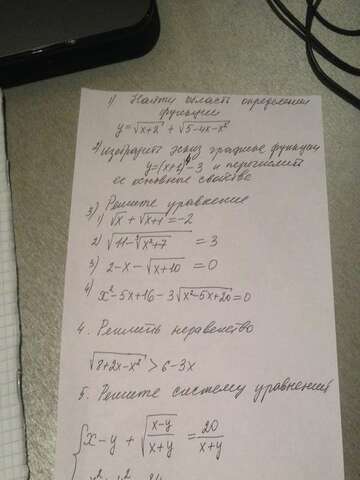 1) Найти область определения
функции
y=√x+2 + √5-4x-x²
2) изобразить эскиз графика функции
y=(x+1)⁴-3 и перечислить
ее основные свойства
3) Решите уравнение
1) √x + √x+1=-2
2) √11-√x²+7 = 3
3) 2-x-√x+10 = 0
4) x²-5x+16-3√x²-5x+20=0
4. Решить неравенство
√8+2x-x² > 6-3x
5. Решите систему уравнений
{x-y + √(x-y)/(x+y) = 20/(x+y)